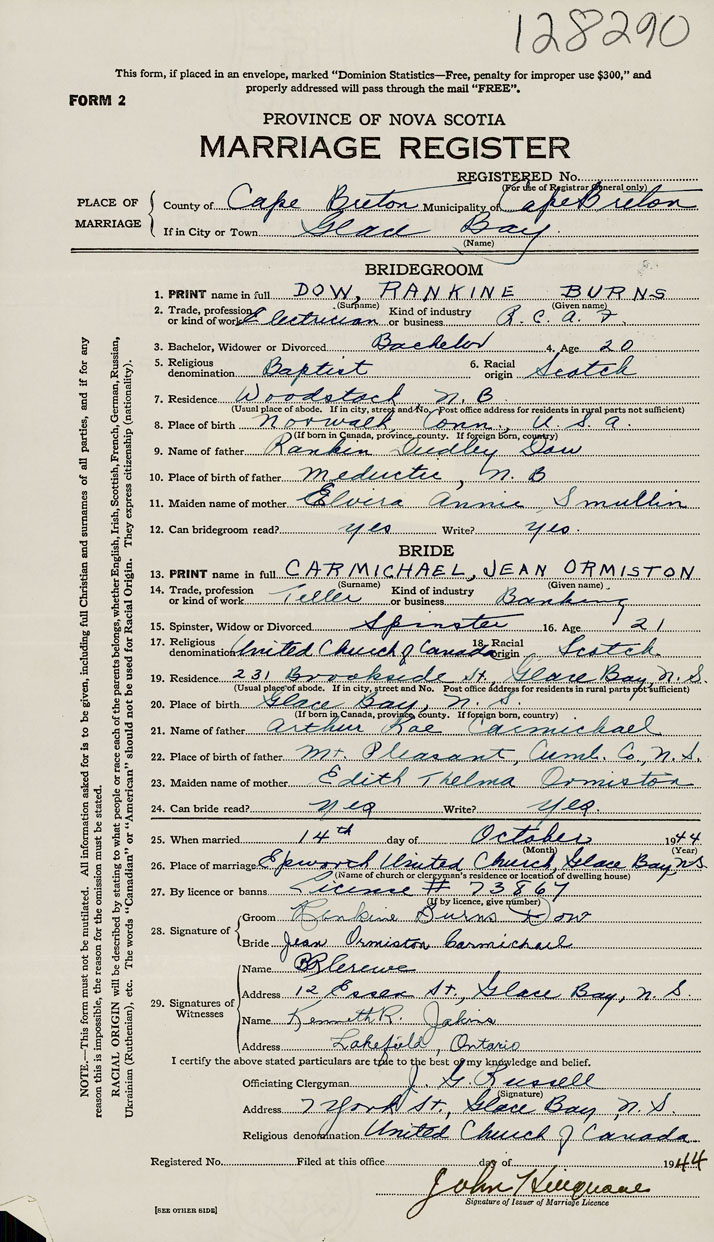 128290
This form, if placed in an envelope, marked "Dominion Statistics—Free, penalty for improper use $300," and
properly addressed will pass through the mail "FREE".
FORM 2
PROVINCE OF NOVA SCOTIA
MARRIAGE REGISTER
REGISTERED No.
(For use of Registrar General only)
PLACE OF MARRIAGE
County of Cape Breton Municipality of Cape Breton
If in City or Town Glace Bay
(Name)
BRIDEGROOM
1. PRINT name in full DOW, RANKINE BURNS
(Surname) (Given name)
2. Trade, profession or kind of work Electrician Kind of industry or business R. C. A. F.
3. Bachelor, Widower or Divorced Bachelor 4. Age 20
5. Religious denomination Baptist 6. Racial origin Scotch
7. Residence Woodstock, N. B
(Usual place of abode. If in city, street and No. Post office address for residents in rural parts not sufficient)
8. Place of birth Norwalk, Conn., U. S. A.
(If born in Canada, province, county. If foreign born, country)
9. Name of father Rankin Dudley Dow
10. Place of birth of father Meductic, N. B
11. Maiden name of mother Elvira Annie Smullin
12. Can bridegroom read? yes Write? yes.
BRIDE
13. PRINT name in full CARMICHAEL, JEAN ORMISTON
(Surname) (Given name)
14. Trade, profession or kind of work Teller Kind of industry or business Banking
15. Spinster, Widow or Divorced Spinster 16. Age 21
17. Religious denomination United Church of Canada 18. Racial origin Scotch
19. Residence 231 Brookside St., Glace Bay, N. S.
(Usual place of abode. If in city, street and No. Post office address for residents in rural parts not sufficient)
20. Place of birth Glace Bay, N. S.
(If born in Canada, province, county. If foreign born, country)
21. Name of father Arthur Rae Carmichael
22. Place of birth of father Mt. Pleasant, Cumb. Co., N. S.
23. Maiden name of mother Edith Thelma Ormiston
24. Can bride read? yes Write? yes.
25. When married 14th day of October 1944
(Month) (Year)
26. Place of marriage Epworth United Church, Glace Bay, N.S
(Name of church or clergyman's residence or location of dwelling house)
27. By licence or banns License # 73867
(If by licence, give number)
28. Signature of
Groom Rankine Burns Dow
Bride Jean Ormiston Carmichael
29. Signatures of Witnesses
Name
Address 12 Essex St., Glace Bay, N. S.
Name Kenneth R.
Address Lakefield, Ontario
I certify the above stated particulars are true to the best of my knowledge and belief.
Officiating Clergyman J. G. Russell
(Signature)
Address 7 York St., Glace Bay, N. S.
Religious denomination United Church of Canada
Registered No. Filed at this office day of 1944
John
Signature of Issuer of Marriage Licence
[SEE OTHER SIDE]
NOTE.—This form must not be mutilated. All information asked for is to be given, including full Christian and surnames of all parties, and if for any
reason this is impossible, the reason for the omission must be stated.
RACIAL ORIGIN will be described by stating to what people or race each of the parents belongs, whether English, Irish, Scottish, French, German, Russian,
Ukrainian (Ruthenian), etc. The words "Canadian" or "American" should not be used for Racial Origin. They express citizenship (nationality).